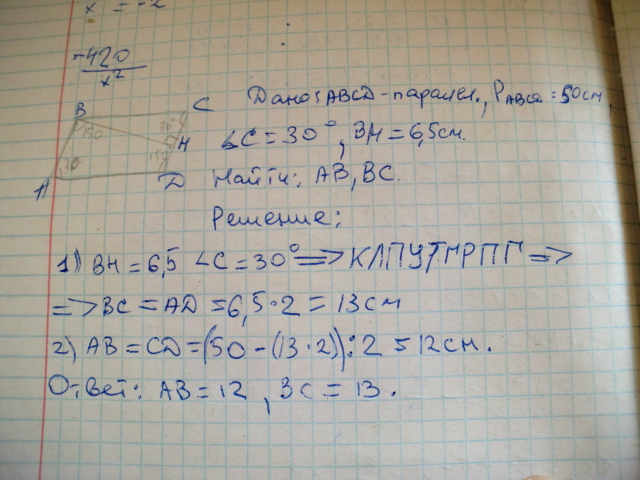 x = -2
-420
x²
B C
150 30°
H
30 150
A D
Дано: ABCD-паралел., PABCD = 50см,
∠C = 30°, BH = 6,5см.
Найти: AB, BC.
Решение:
1) BH = 6,5 ∠C = 30° => КЛПУТМРПГ =>
=> BC = AD = 6,5·2 = 13см
2) AB = CD = (50 - (13·2)):2 = 12см.
Ответ: AB = 12, BC = 13.